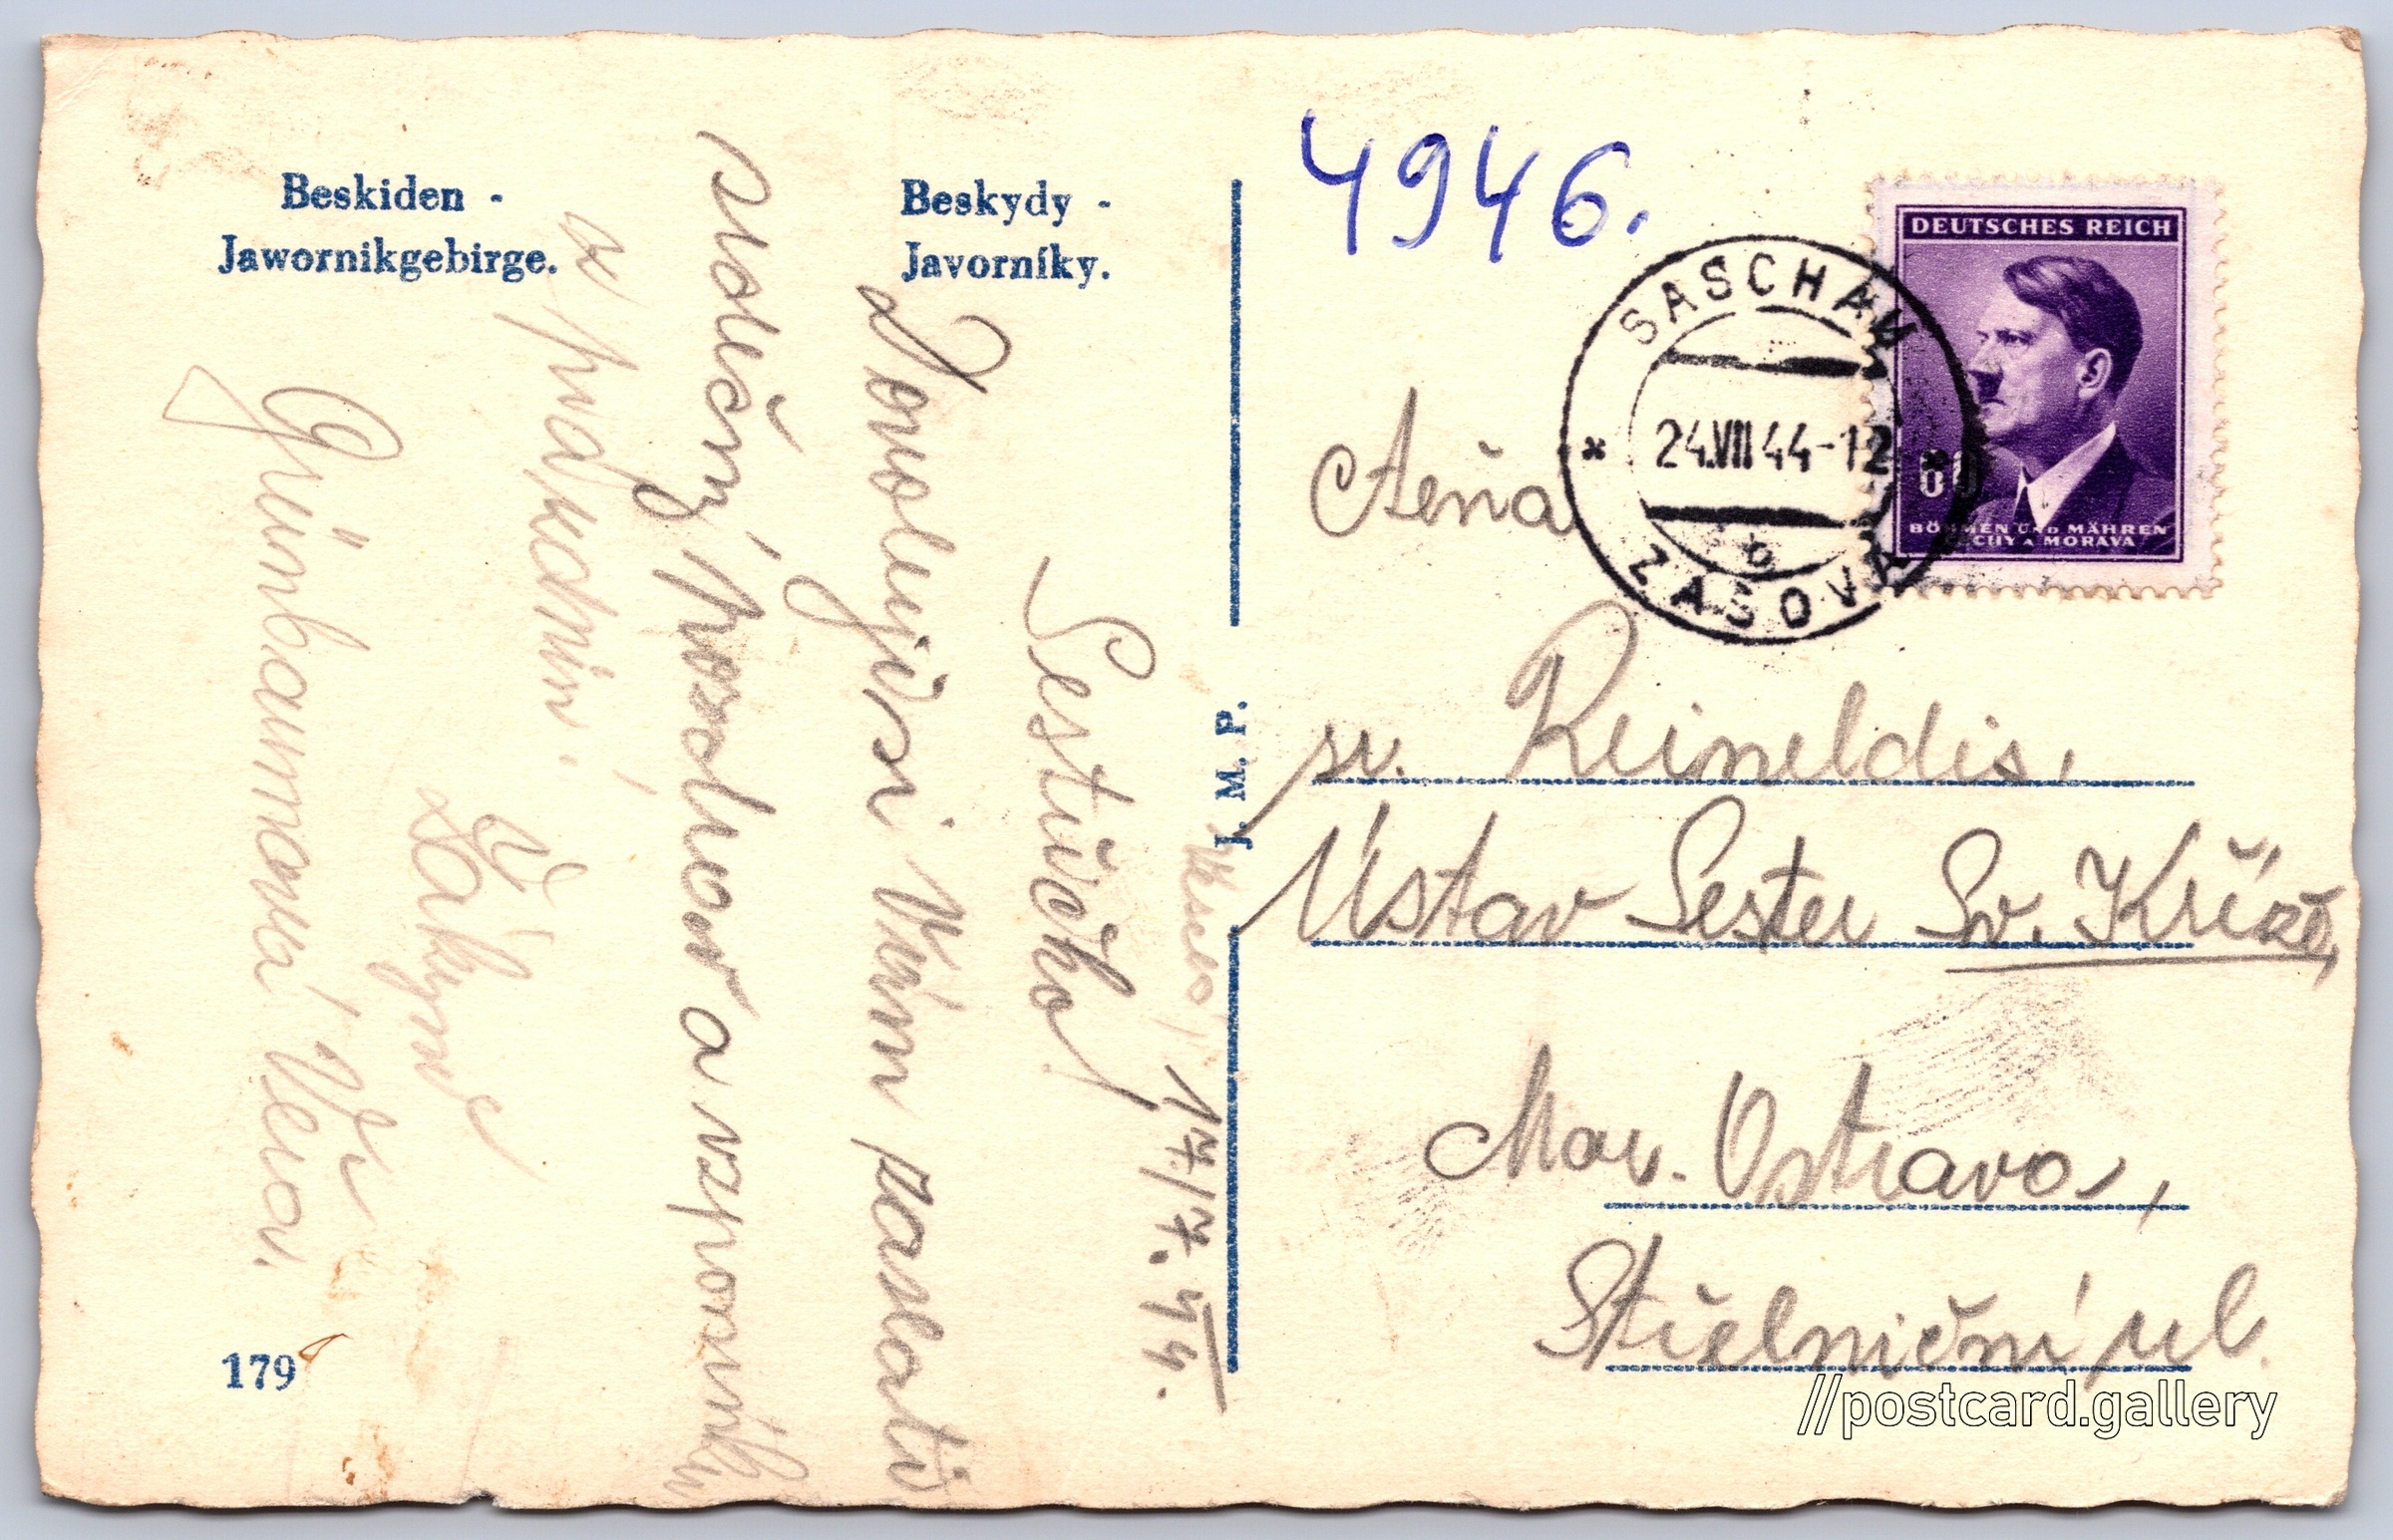 Beskiden -
Jawornikgebirge.
Beskydy -
Javorníky.
17/7. 44.
Sestřičko!
Dovolujisi Vám zaslati
srdečný pozdrav a vzpomínku
z prázdnin.
Žákyně
Grünbaumová Věra.
179
J. M. P.
4946.
SASCHAU
24.VII 44-12
b
ZAŠOVÁ
DEUTSCHES REICH
60
BÖHMEN UND MÄHREN
ČECHY A MORAVA
sr. Reineldis,
Ústav Sester Sv. Kříže,
Mor. Ostrava,
Střelniční ul.
//postcard.gallery